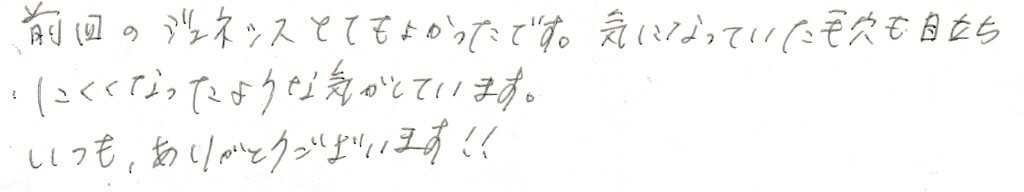 前回のジェネシスとてもよかったです。気になっていた毛穴も目立ち
にくくなったような気がしています。
いつも、ありがとうございます!!